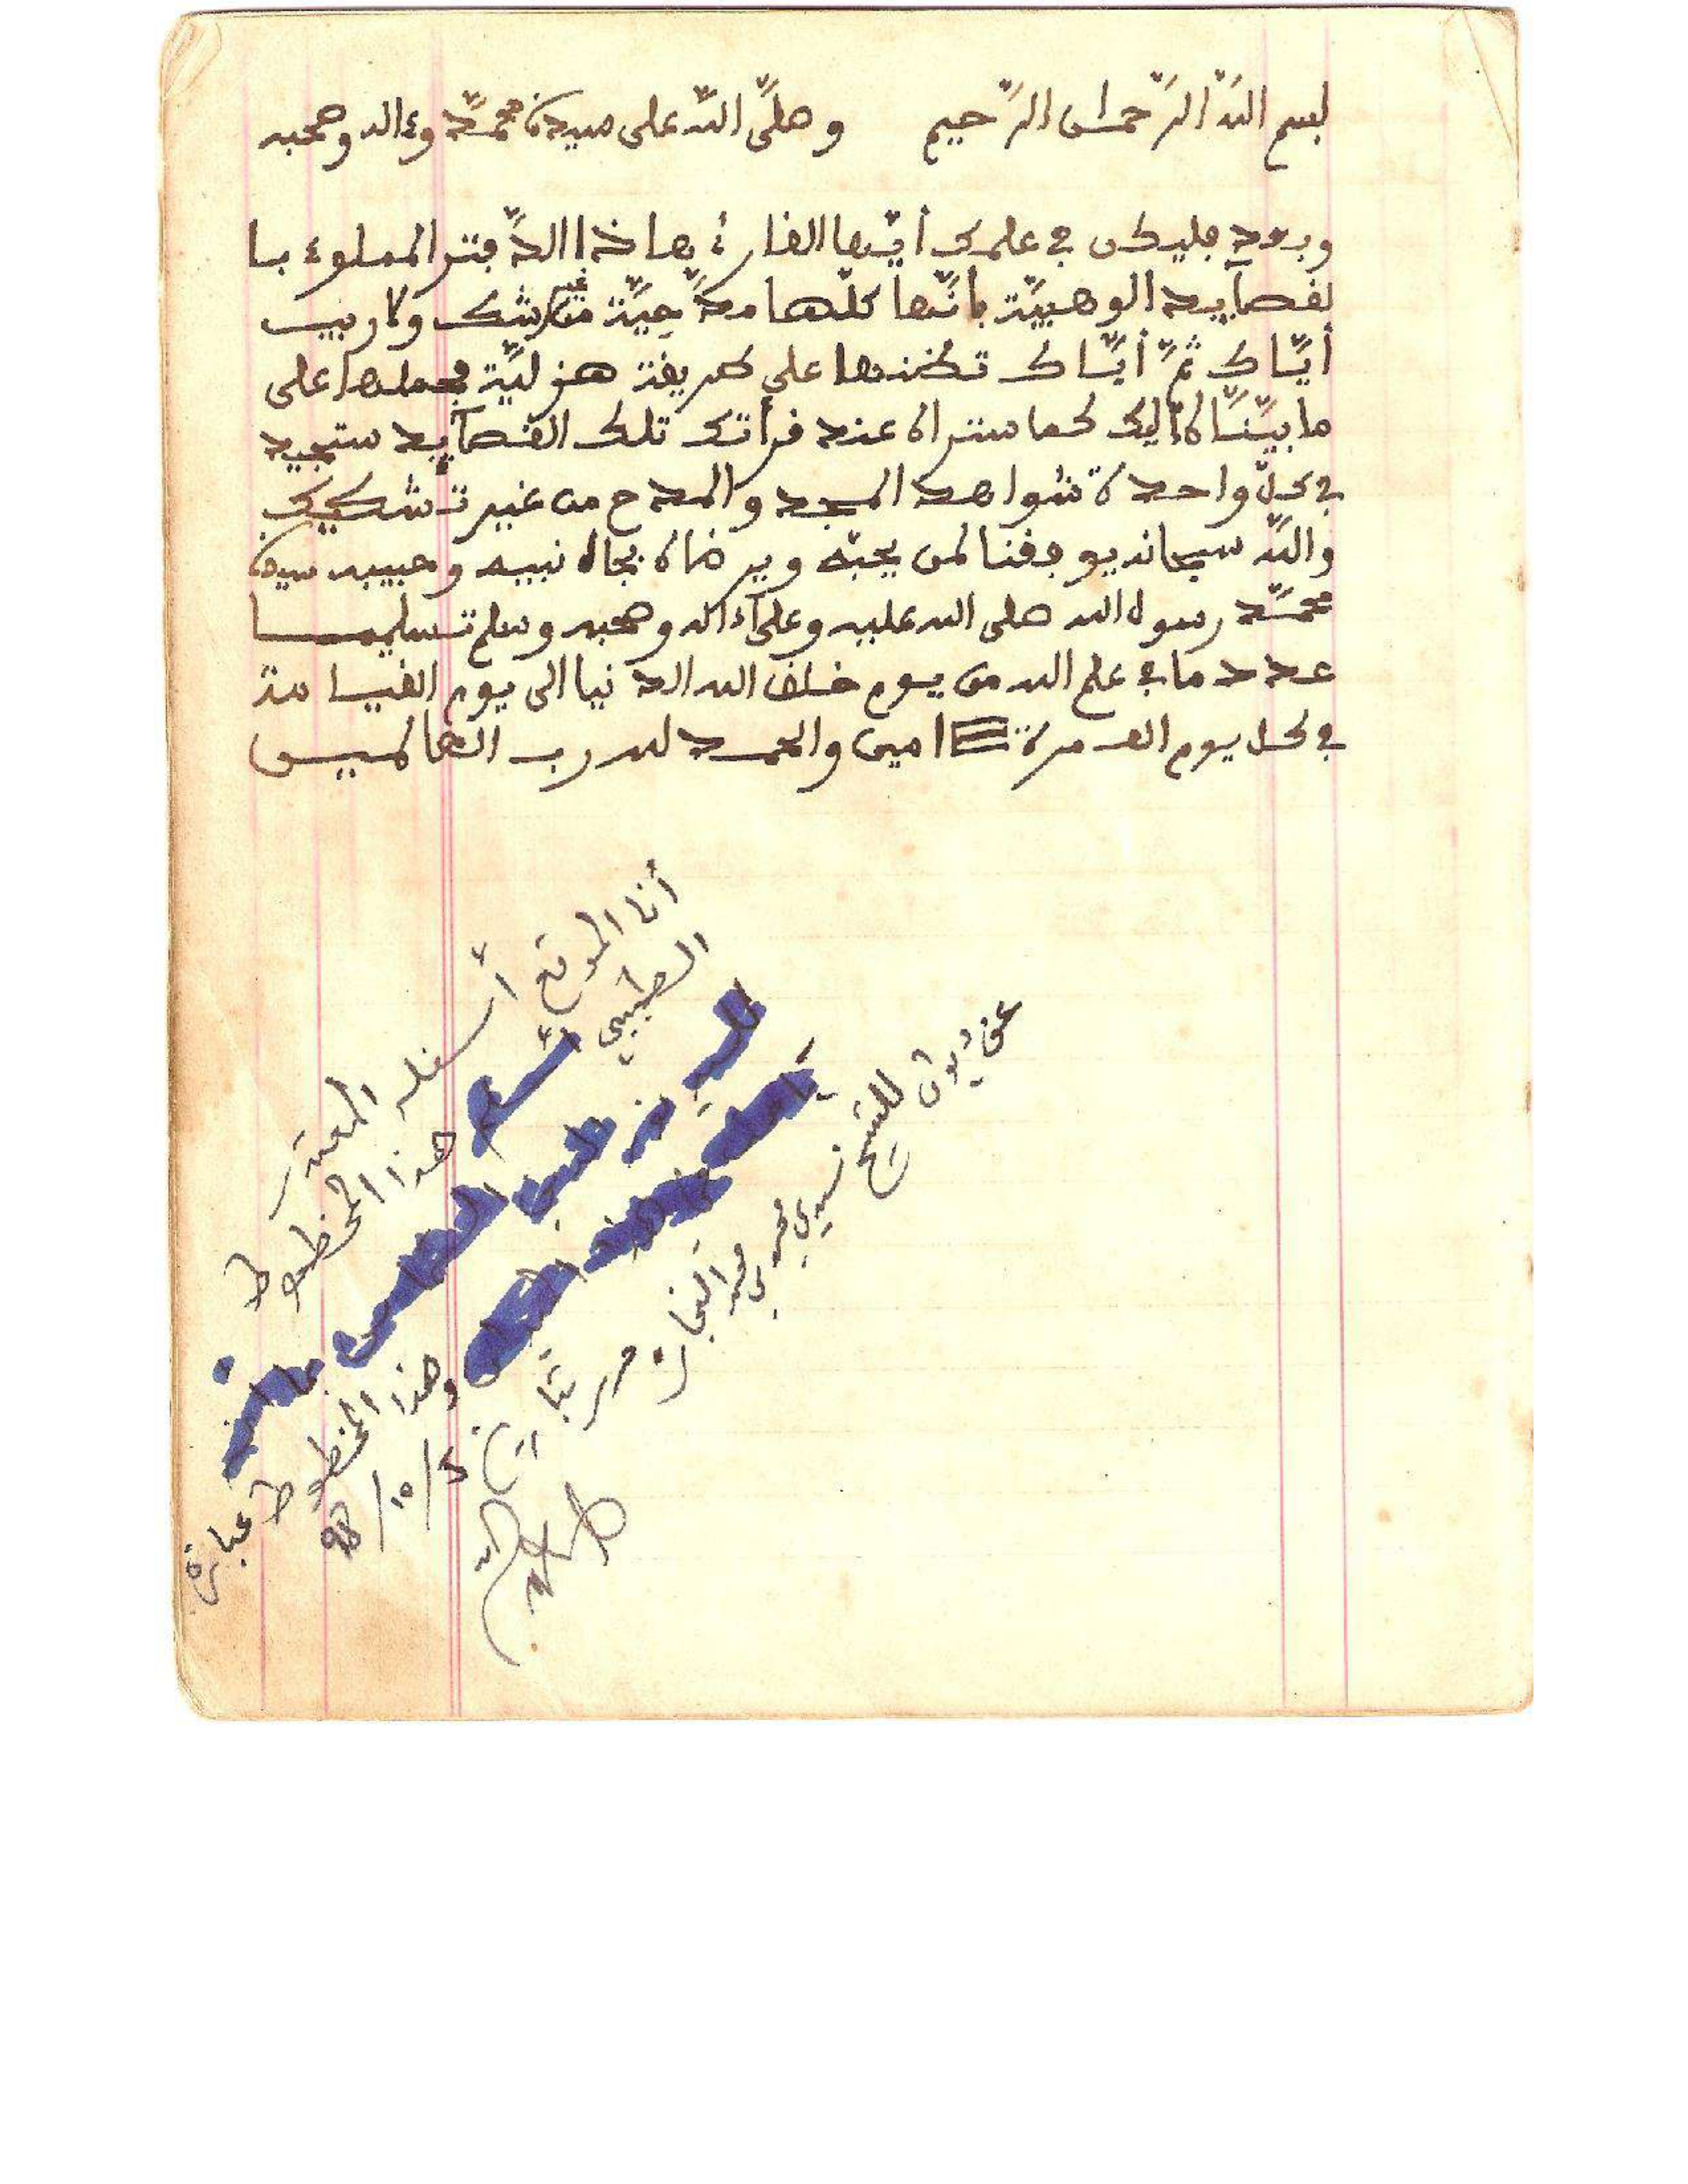 بسم اللّه الرّحمان الرّحيم وصلّى اللّه على سيدنا محمّد وءاله وصحبه
وبعد فليكن في علمك أيّها القارئ بهاذا الدّفتر المملوء با
لقصآيد الوهبيّة بانّها كلّها مدّحيّة من غير شك ولا ريب
أيّاك ثمّ أيّاك تظنها على طريقة هزليّة فحملها على
ما بيّنّاه اليك كما ستراه عند قرأتك تلك القصآيد ستجد
في كلّ واحدة شواهد المجد والمدح من غير تشكيك
واللّه سبحانه يوفقنا لمن يحبّه ويرضاه بجاه نبيه وحبيبه سيدنا
محمّد رسول الله صلى الله عليه وعلى ءاله وصحبه وسلم تسليما
عدد ما في علم الله من يوم خلق الله الدنيا الى يوم القيامة
في كل يوم الف مرة امين والحمد لله رب العالمين
أنا الموقع أسفله المعتدر
الطيبي هذا المخطوط
وهذا المخطوط عبارة
عن ديوان للشيخ سيدي محمد بن محمد النجار
98/10/5